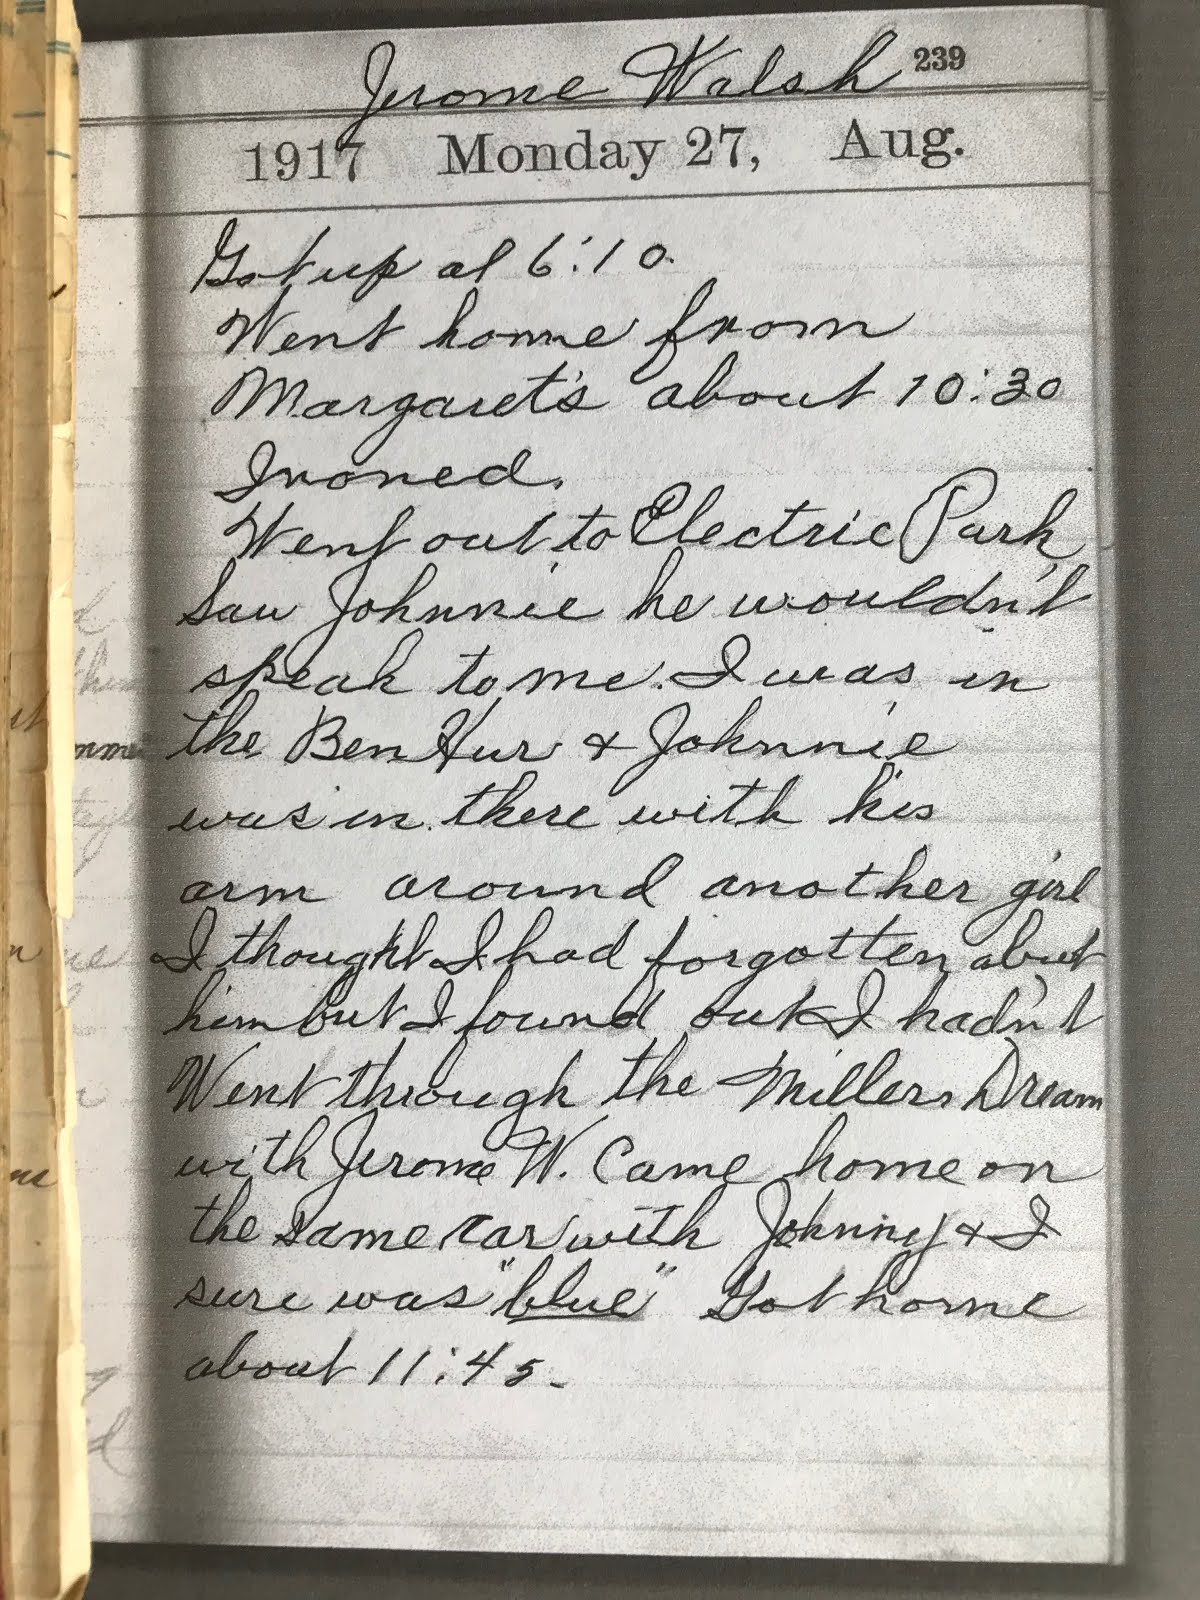 Jerome Walsh 239
1917 Monday 27, Aug.
Got up at 6:10.
Went home from
Margaret's about 10:30
Ironed.
Went out to Electric Park
Saw Johnnie he wouldn't
speak to me. I was in
the Ben Hur & Johnnie
was in there with his
arm around another girl
I thought I had forgotten about
him but I found out I hadn't
Went through the Millers Dream
with Jerome W. Came home on
the same car with Johnny & I
sure was "blue" Got home
about 11:45.